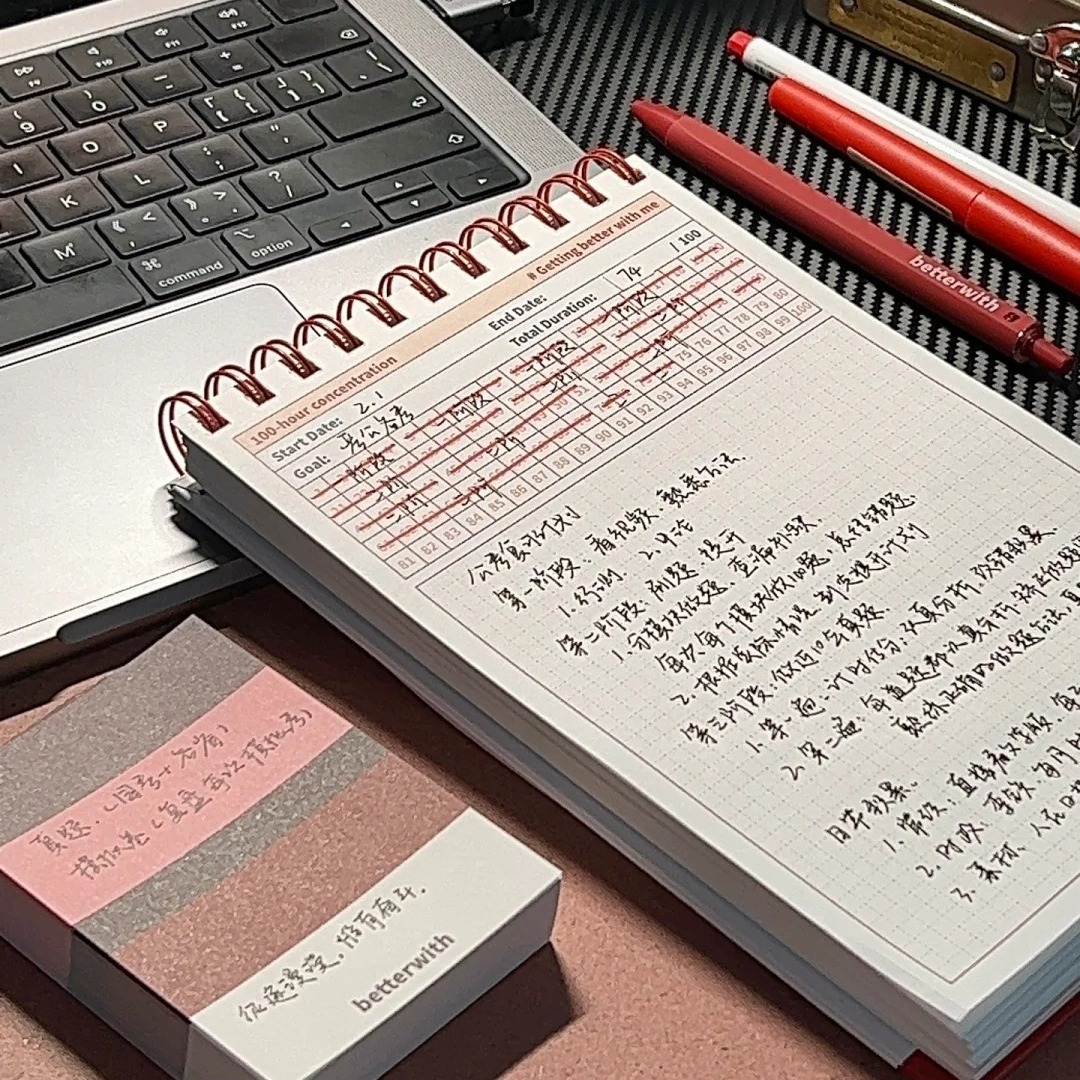 F9
F10
F11
F12
9
0
-
+
=
I
O
P
{
[
}
]
K
L
:
;
"
'
M
《 <
, ,
》 >
。 .
?
/
⌘
command
⌥
option
betterwith
100-hour concentration
# Getting better with me
Start Date: 2.1
End Date:
Goal: 考公备考
Total Duration: 74 / 100
一阶段
一阶段
一阶段
75 76 77 78 79 80
81 82 83 84 85 86 87 88 89 90 91 92 93 94 95 96 97 98 99 100
公考复习计划
第一阶段：看视频，熟悉方法.
1. 行测. 2. 申论
第二阶段：刷题，提升
1. 分模块做题，查漏补缺.
每次每个模块做100题，总结错题.
2. 根据实际情况，制定提升计划
第三阶段：做近10年真题.
1. 第一遍，计时估分，认真分析
2. 第二遍，每道题都认真分析
熟练正确的做题方法
日常积累.
1. 常识：直接看
2. 时政：
3. 素材：人民日报
真题.（国考+省考）
模拟卷（复盘每次模拟考）
征途漫漫，惟有奋斗.
betterwith